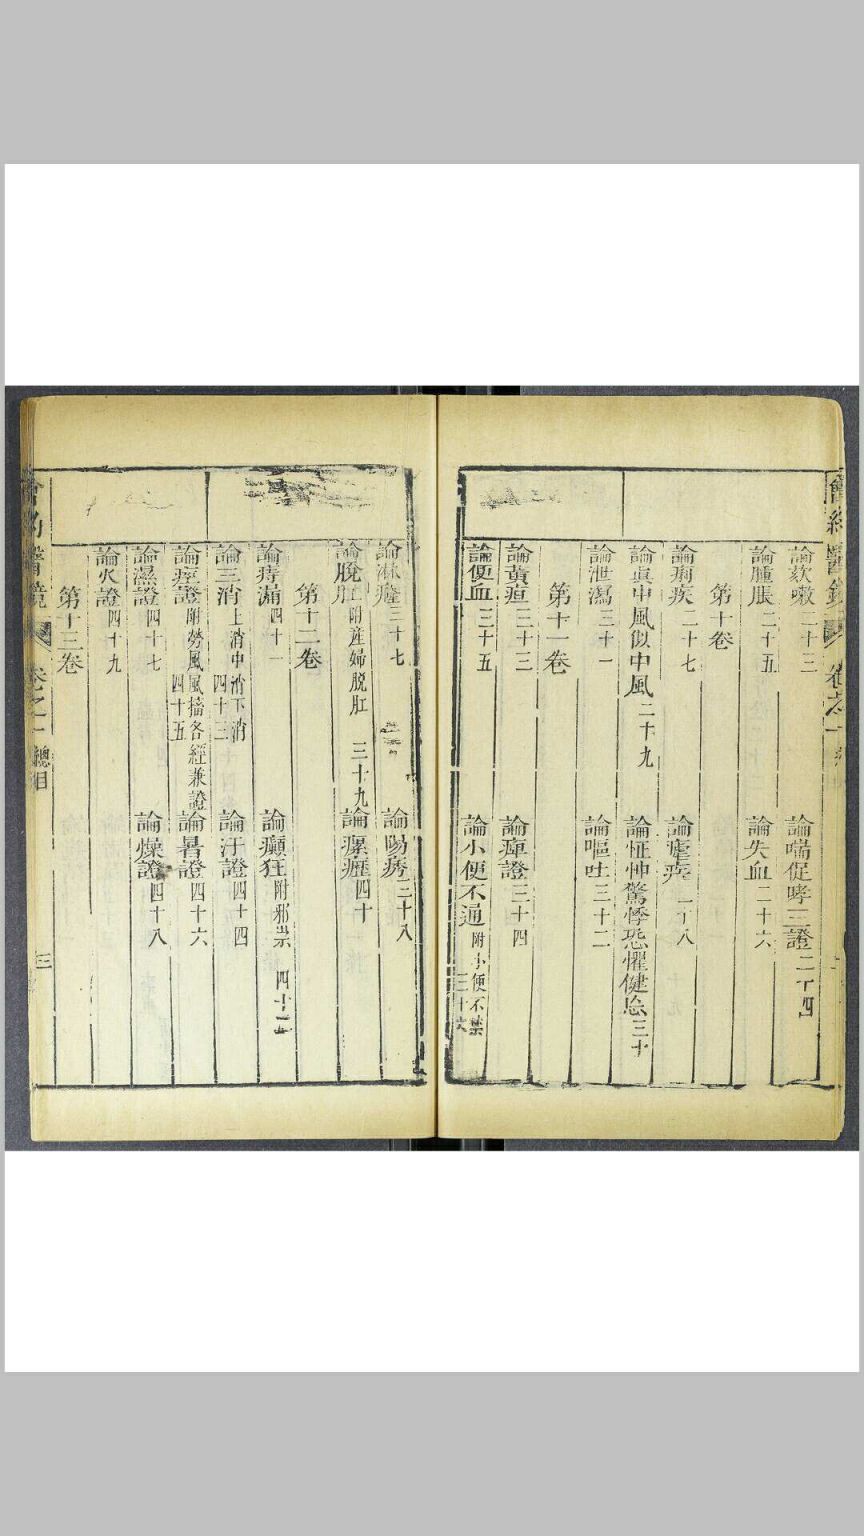 論欬嗽二十三 論喘促哮三證二十四
論腫脹二十五 論失血二十六
第十卷
論痢疾二十七 論瘧疾二十八
論眞中風似中風二十九 論怔忡驚悸恐懼健忘三十
論泄瀉三十一 論嘔吐三十二
第十一卷
論黃疸三十三 論痺證三十四
論便血三十五 論小便不通附小便不禁三十六
論淋癃三十七 論陽痿三十八
論脫肛附産婦脫肛 三十九 論瘰癧四十
第十二卷
論痔漏四十一 論癲狂附邪祟 四十二
論三消上消中消下消四十三 論汗證四十四
論痙證附勞風風搐各經兼證四十五 論暑證四十六
論濕證四十七 論燥證四十八
論火證四十九
第十三卷
會約醫鏡 卷之一總目 三